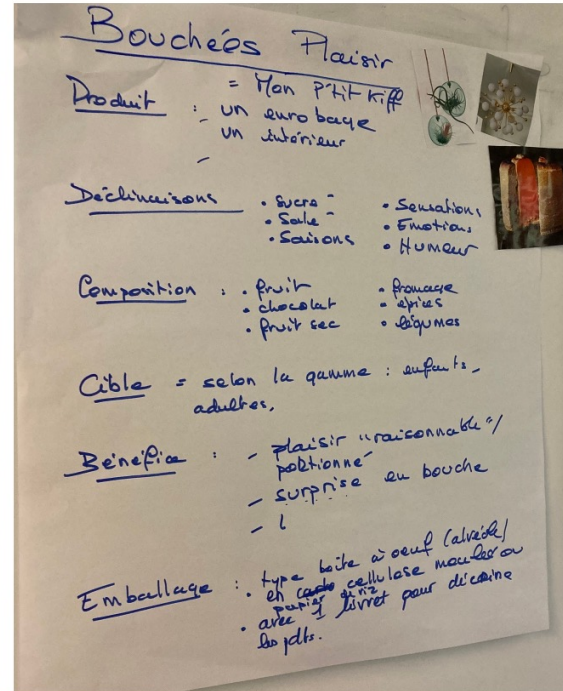 Bouchées Plaisir
= Mon P'tit Kiff
Produit : un enrobage
- un intérieur
-
Déclinaisons • Sucré • Sensations
• Salé • Emotions
• Saisons • Humeur
Composition : • fruit • fromage
• chocolat • épices
• fruit sec • légumes
Cible = selon la gamme : enfants,
adultes,
Bénéfice : - plaisir "raisonnable"/
portionné
- surprise en bouche
-
Emballage : • type boîte à oeuf (alvéole)
en cellulose moulée ou
papier de riz
• avec 1 livret pour décrire
les pdts.